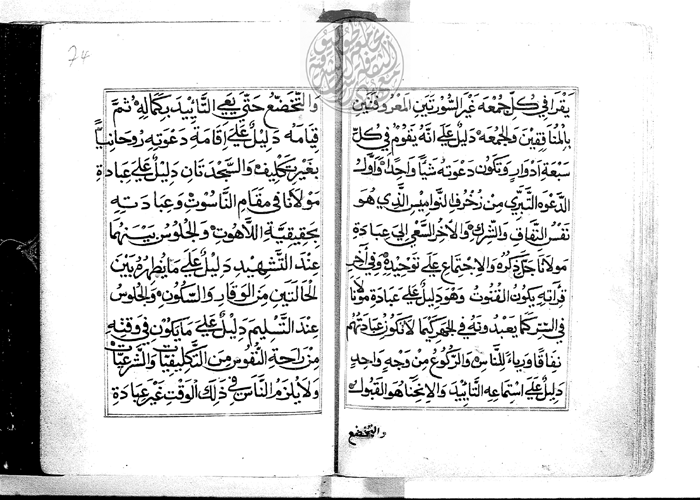 يقرا في كل جمعه غير السورتين المعروفتين
بالمنافقين والجمعه دليل على انه يقوم في كل
سبعة ادوار وتكون دعوته شيا واحدا واول
الدعوه التبري من زخرف النواميس الذي هو
نفس النفاق والشرك والاخر السعي الى عبادة
مولانا جل ذكره والاجتماع على توحيده وفي اخر
قراته يكون القنوت وهو دليل على عبادة مولانا
في الستر كما يعبدونه في الجهر كيما لا تكون عبادتهم
نفاقا ورياء للناس والركوع من وجه واحد
دليل على استماعه التاييد والانحنا هو القبول
والتخضع
74
والتخضع حتى يعي التاييد بكماله ثم
قيامه دليل على اقامة دعوته روحانيا
بغير تكليف والسجدتان دليل على عبادة
مولانا في مقام الناسوت وعبادته
بحقيقية اللاهوت والجلوس بينهما
عند التشهيد دليل على ما يظهر بين
الحالتين من الوقار والسكون والجلوس
عند التسليم دليل على ما يكون في وقته
من راحة النفوس من التكليفيات والشرعيات
ولا يلزم الناس في ذلك الوقت غير عبادة